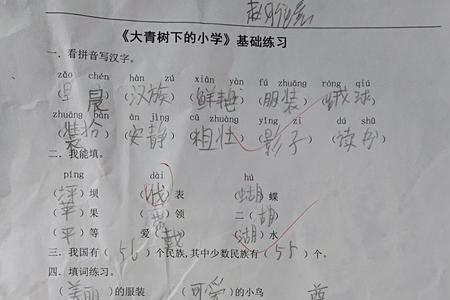 《大青树下的小学》基础练习
一．看拼音写汉字。
zǎo chén hàn zú xiān yàn fú zhuāng róng qiú
早晨（汉族）（鲜艳）（服装）（绒球）
zhuāng bàn ān jìng cū zhuàng yǐng zi dú shū
（装扮）（安静）（粗壮）（影子）（读书）
二．我能填。
píng dài hú
（坪）坝 （代）表 （蝴）蝶
（苹）果 （带）领 二（胡）
（平）等 爱（戴） （湖）水
三．我国有（56）个民族,其中少数民族有（55）个。
四．填词练习。
（美丽）的服装 （可爱）的小鸟